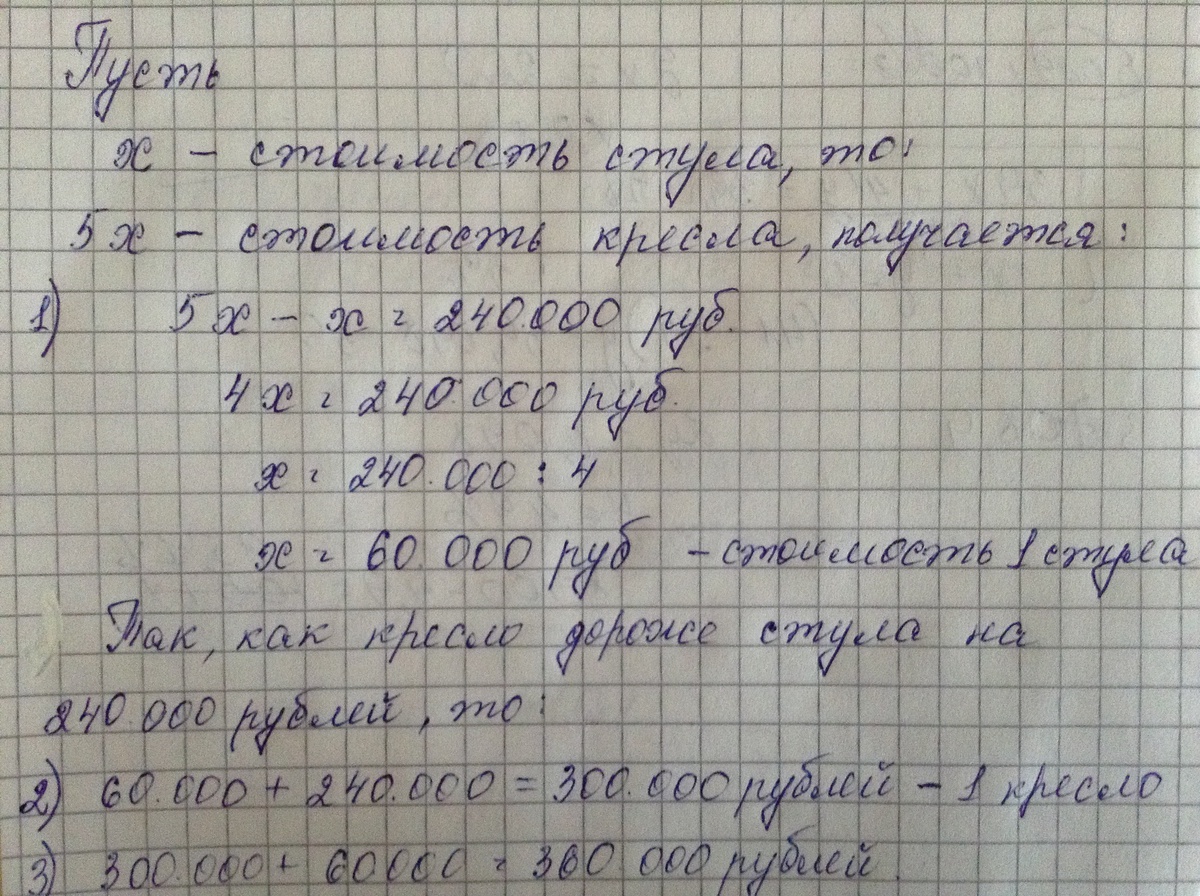 Пусть
х - стоимость стула, то:
5х - стоимость кресла, получается:
1) 5х - х = 240.000 руб.
4х = 240.000 руб.
х = 240.000 : 4
х = 60 000 руб - стоимость 1 стула
Так, как кресло дороже стула на
240.000 рублей, то:
2) 60.000 + 240.000 = 300.000 рублей - 1 кресло
3) 300.000 + 60000 = 360 000 рублей.